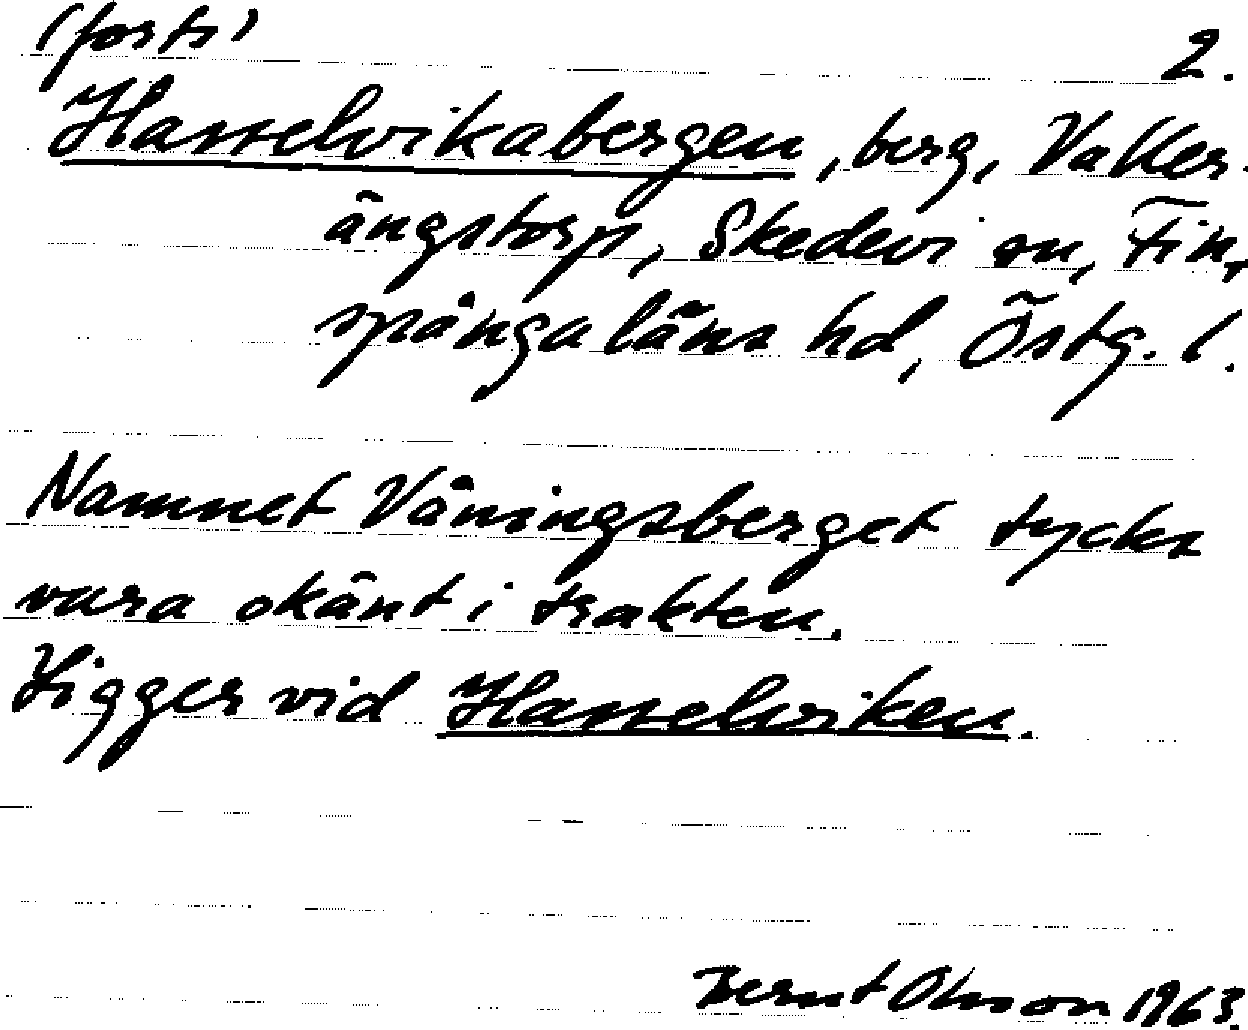 (forts) 2.
Hasselvikabergen, berg, Valler-
ängstorp, Skedevi sn, Fin-
spånga läns hd, Östg. l.
Namnet Våningsberget tycks
vara okänt i trakten.
Ligger vid Hasselviken.
Bernt Olsson 1963.